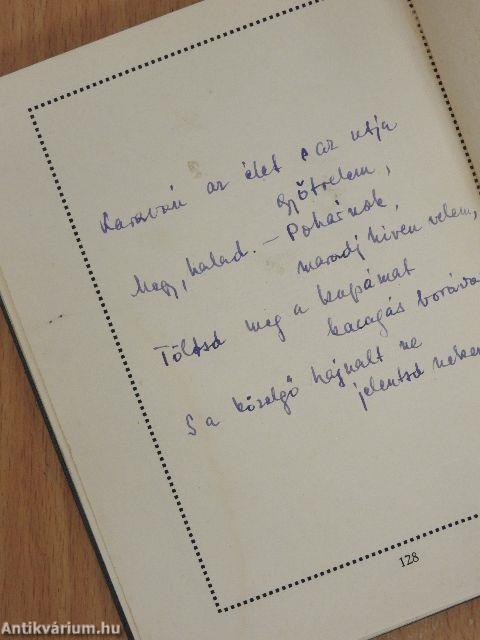 Karaván az élet s az útja
gyötrelem,
Megy, halad. — Pohárnok,
maradj híven velem,
Töltsd meg a kupámat
kacagás borával
S a közelgő hajnalt ne
jelentsd nekem
128
Antikvárium.hu